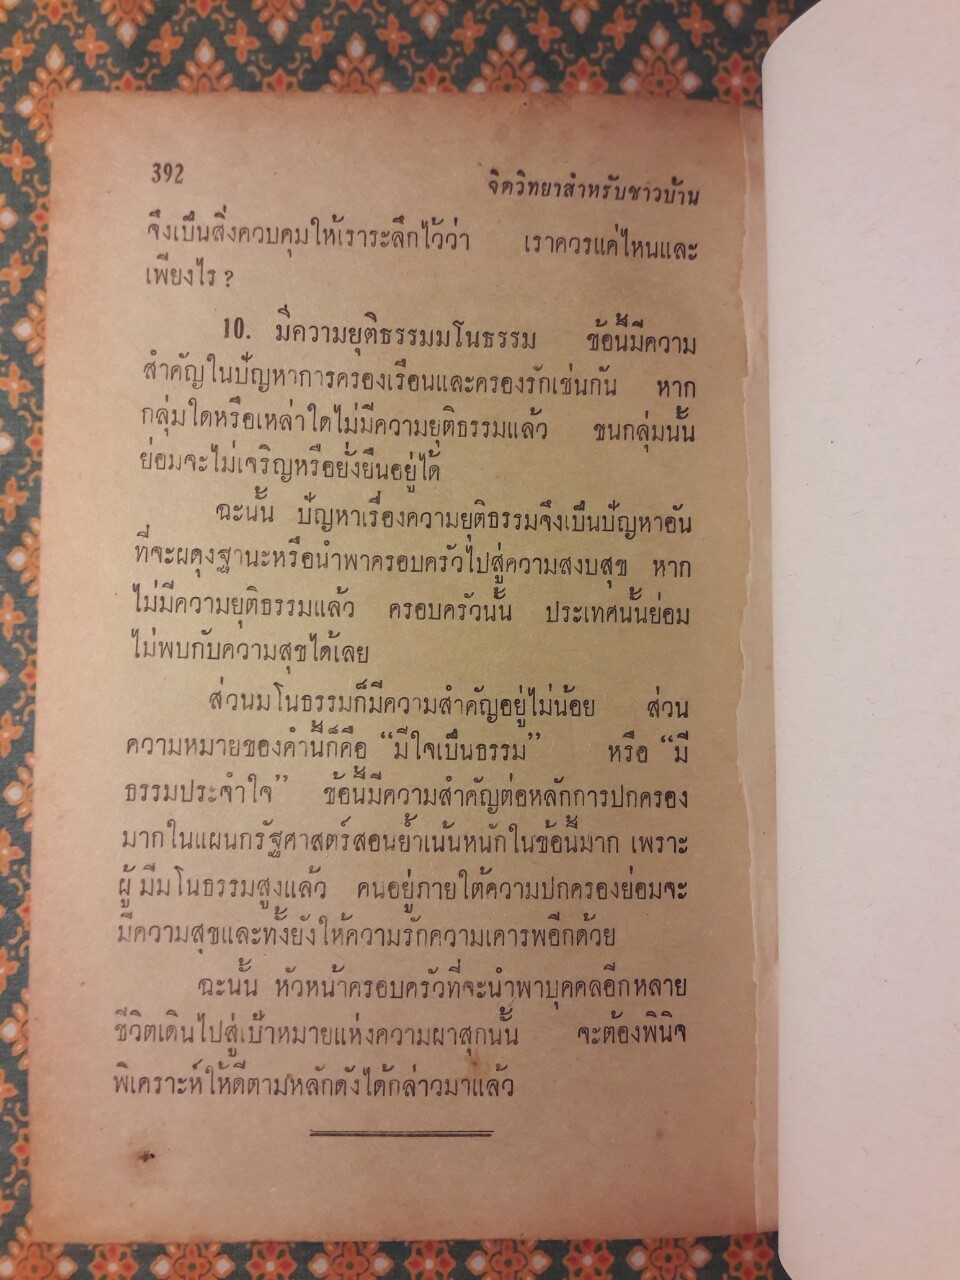 392
จิตวิทยาสำหรับชาวบ้าน
จึงเป็นสิ่งควบคุมให้เราระลึกไว้ว่า เราควรแค่ไหนและ
เพียงไร ?
10. มีความยุติธรรมมโนธรรม ข้อนี้มีความ
สำคัญในปัญหาการครองเรือนและครองรักเช่นกัน หาก
กลุ่มใดหรือเหล่าใดไม่มีความยุติธรรมแล้ว ชนกลุ่มนั้น
ย่อมจะไม่เจริญหรือยั่งยืนอยู่ได้
ฉะนั้น ปัญหาเรื่องความยุติธรรมจึงเป็นปัญหาอัน
ที่จะผดุงฐานะหรือนำพาครอบครัวไปสู่ความสงบสุข หาก
ไม่มีความยุติธรรมแล้ว ครอบครัวนั้น ประเทศนั้นย่อม
ไม่พบกับความสุขได้เลย
ส่วนมโนธรรมก็มีความสำคัญอยู่ไม่น้อย ส่วน
ความหมายของคำนี้ก็คือ “มีใจเป็นธรรม” หรือ “มี
ธรรมประจำใจ” ข้อนี้มีความสำคัญต่อหลักการปกครอง
มากในแผนกรัฐศาสตร์สอนย้ำเน้นหนักในข้อนี้มาก เพราะ
ผู้มีมโนธรรมสูงแล้ว คนอยู่ภายใต้ความปกครองย่อมจะ
มีความสุขและทั้งยังให้ความรักความเคารพอีกด้วย
ฉะนั้น หัวหน้าครอบครัวที่จะนำพาบุคคลอีกหลาย
ชีวิตเดินไปสู่เป้าหมายแห่งความผาสุกนั้น จะต้องพินิจ
พิเคราะห์ให้ดีตามหลักดังได้กล่าวมาแล้ว